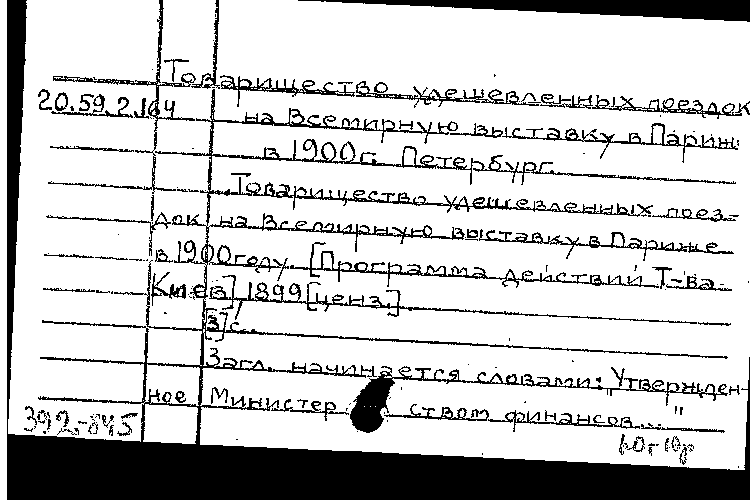 Товарищество удешевленных поездок
20.59.2.164 на Всемирную выставку в Париж
в 1900г. Петербург.
Товарищество удешевленных поез-
док на Всемирную выставку в Париже
в 1900году. [Программа действий Т-ва.
Киев], 1899 [ценз.].
[3]с.
Загл. начинается словами: "Утвержден-
ное Министерством финансов..."
392-845